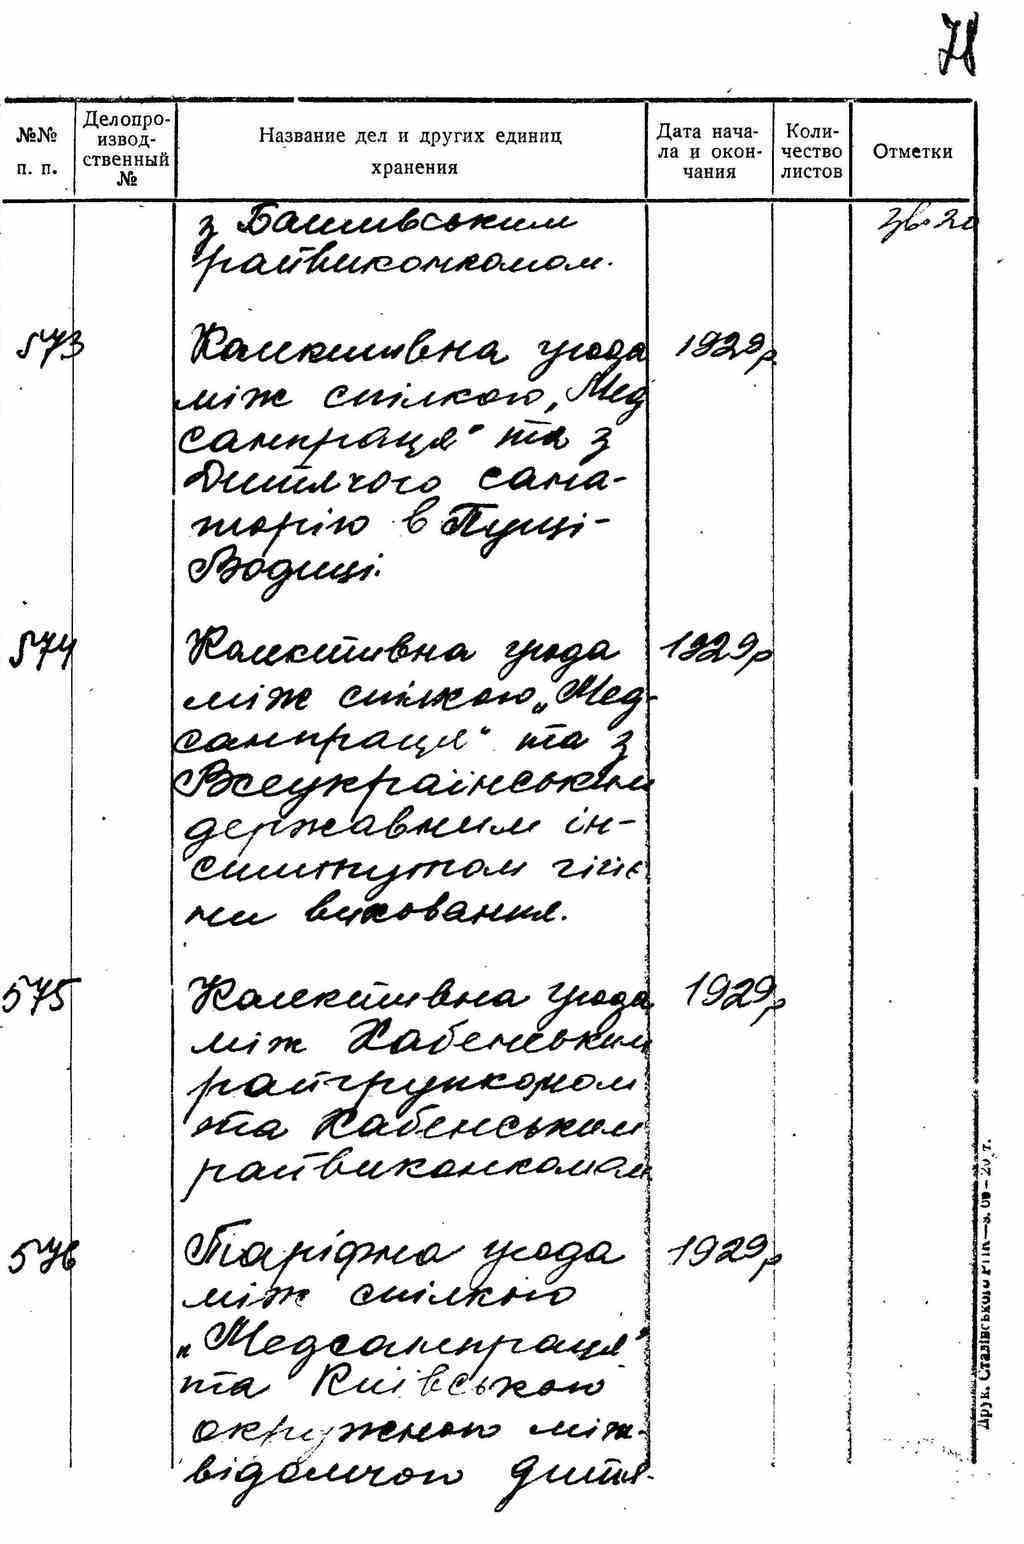 78
№№ п. п.
Делопро-
извод-
ственный
№
Название дел и других единиц
хранения
Дата нача-
ла и окон-
чания
Коли-
чество
листов
Отметки
з
райвиконкомом.
573 Колективна угода 1929р.
між спілкою „Мед
санпраця" та з
Дитячого сана-
торію в Пущі-
Водиці.
574 Колективна угода 1929р
між спілкою „Мед-
санпраця" та з
Всеукраїнським
державним ін-
ститутом гігіє
ни виховання.
575 Колективна угода 1929р
між Хабенським
райгрункомом
та Хабенським
райвиконкомом
576 Таріфна угода 1929р
між спілкою
„Медсанпраця"
та Київською
окружною між-
відомчою дитя-
Друк. Сталінського